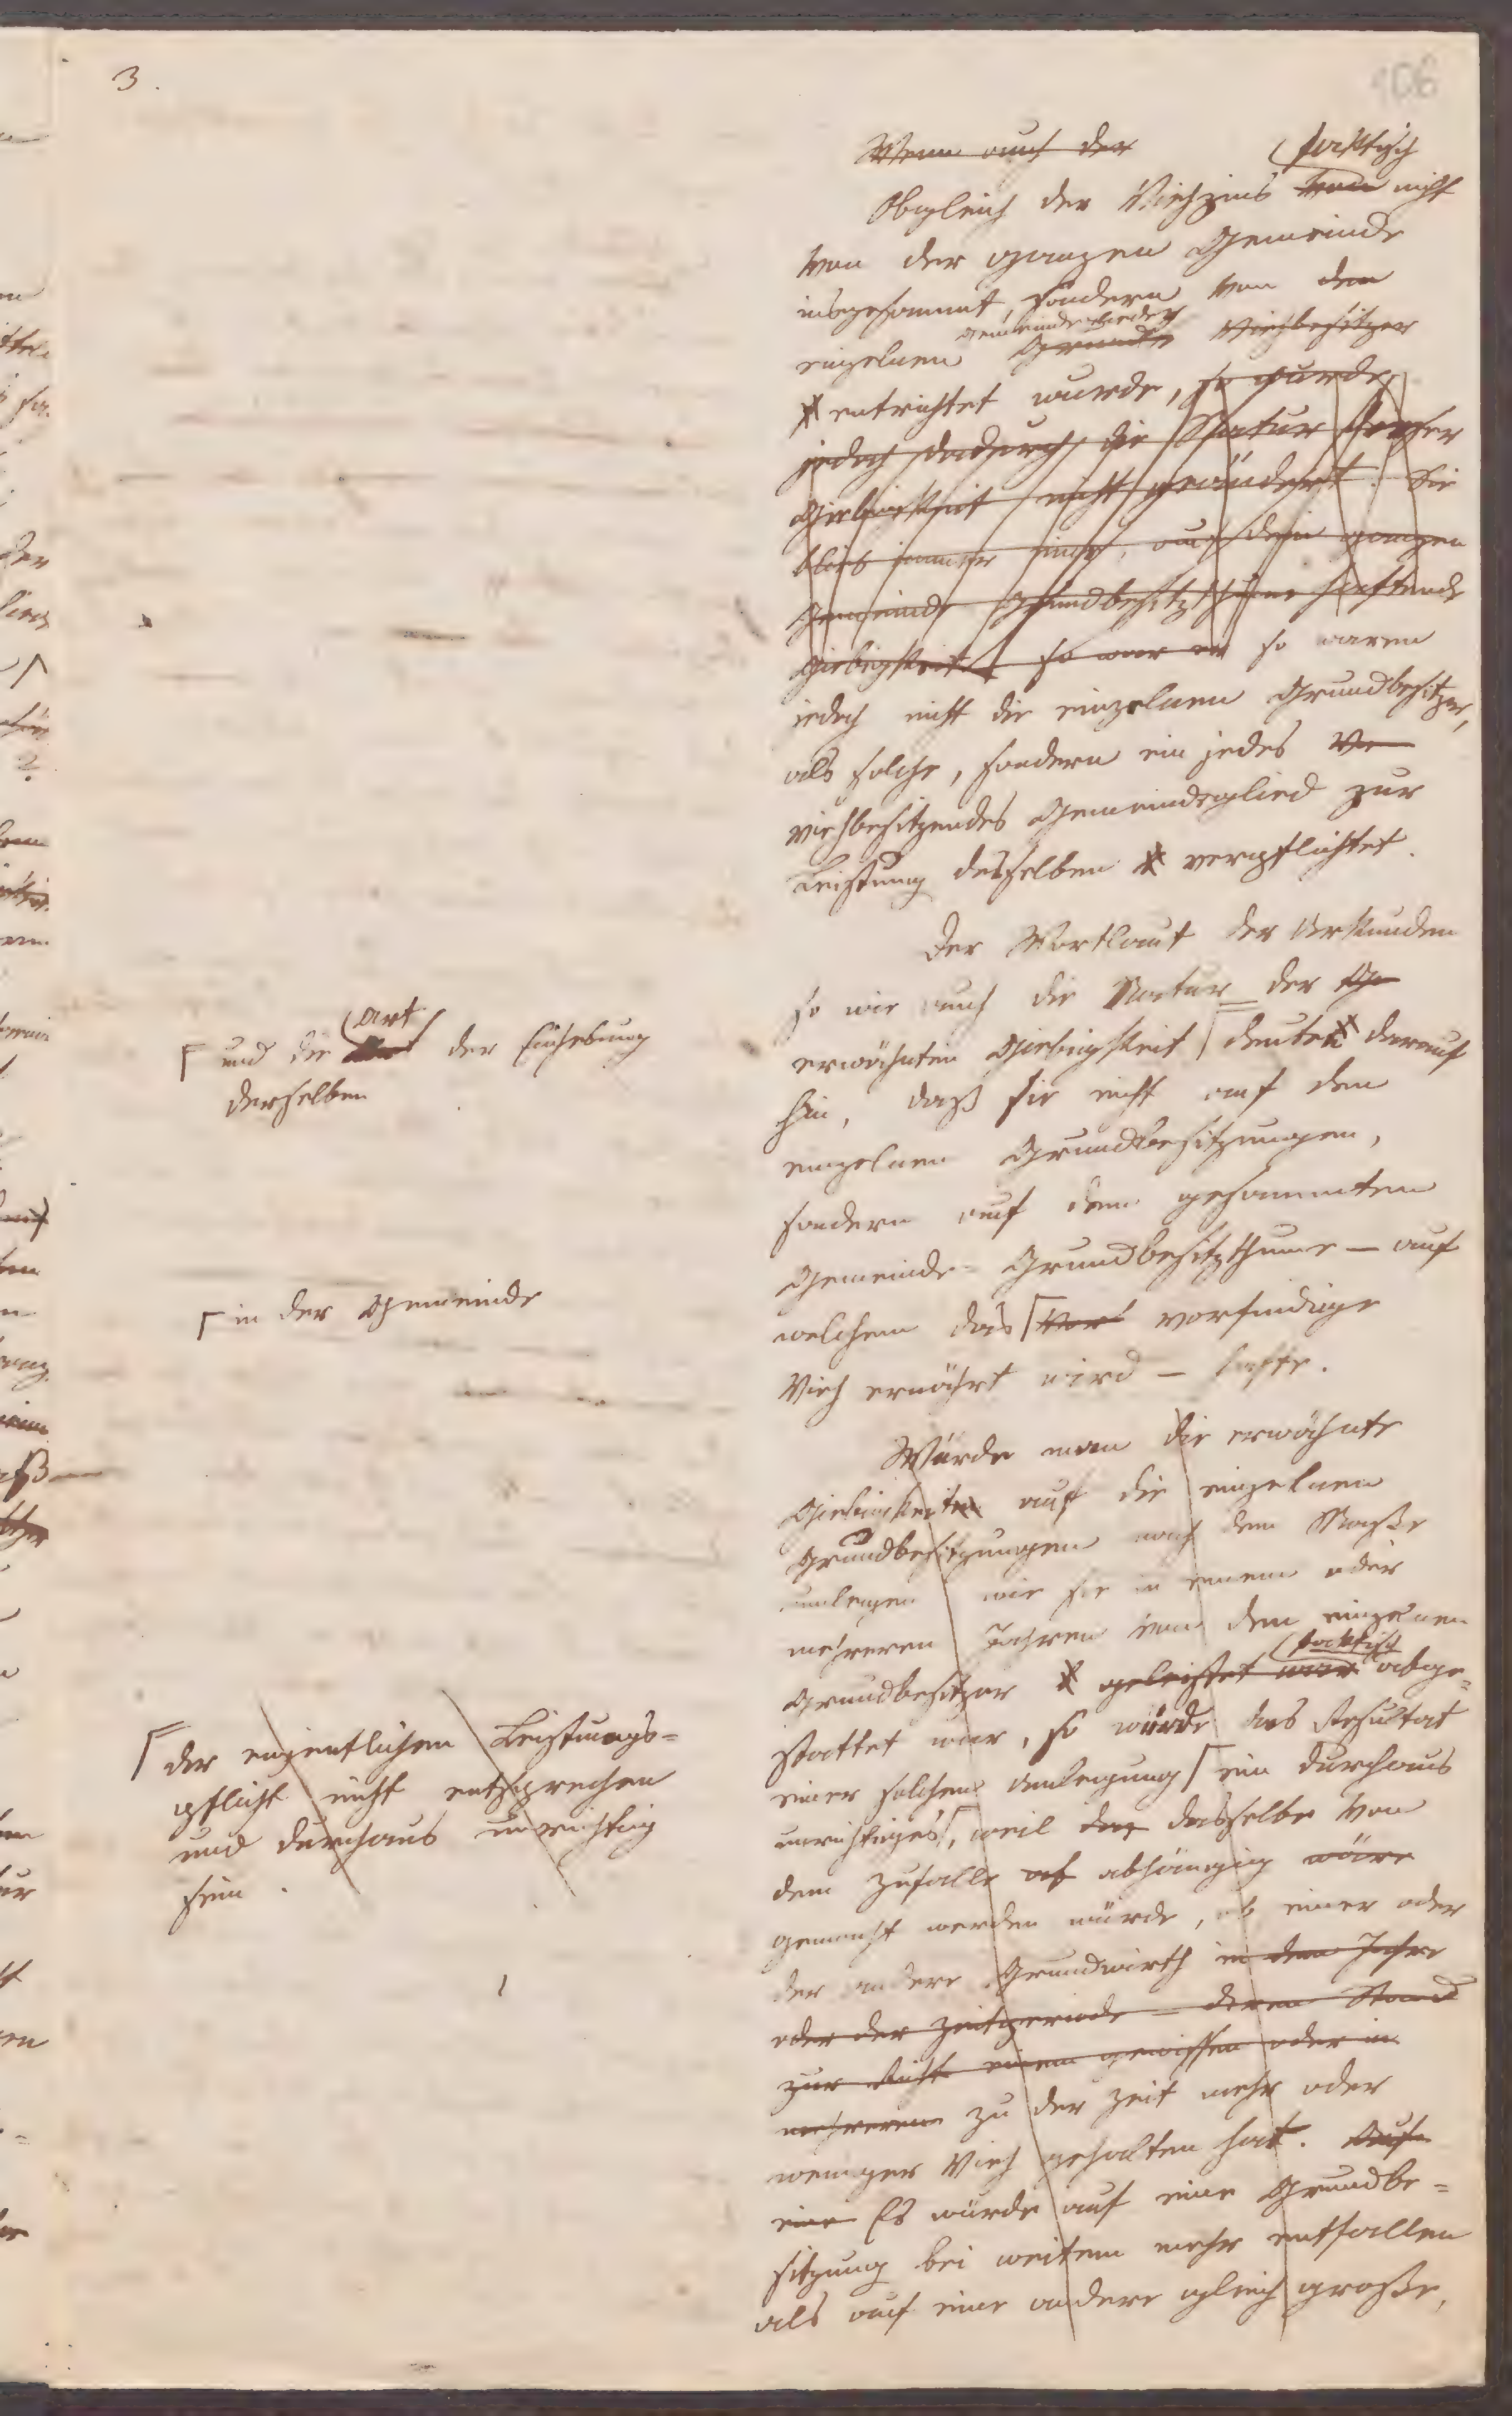 3.
106
Wenn auch der
faktisch
Obgleich der Viehzins von nicht
von der ganzen Gemeinde
insgesammt, sondern von den
Gemeindeglieder
einzelnen Grund Viehbesitzer
entrichtet wurde, so wurde
jedoch dadurch die Natur dieser
Giebigkeit nicht geändert. Sie
blieb immer eine, auf dem ganzen
Gemeinde Grundbesitzthume haftende
Giebigkeit so war er so waren
jedoch nicht die einzelnen Grundbesitzer,
als solche, sondern ein jedes Ve
viehbesitzendes Gemeindeglied zur
Leistung desselben verpflichtet.
Der Wortlaut der Urkunden
so wie auch die Natur der Ge
erwähnten Giebigkeit deuten darauf
hin, daß sie nicht auf den
einzelnen Grundbesitzungen,
sondern auf dem gesammten
Gemeinde-Grundbesitzthume – auf
welchem das vorfindige
Vieh ernährt wird – hafte.
Würde man die erwähnte
Giebigkeiten auf die einzelnen
Grundbesitzungen nach dem Maße
umlegen wie sie in einem oder
mehreren Jahren von dem einzelnen
faktisch
Grundbesitzer geleistet war abge-
stattet war, so würde das Resultat
einer solchen Umlegung ein durchaus
unrichtiges, weil das dasselbe von
dem Zufalle ab abhängig wäre
gemacht werden würde, ob einer oder
der andere Grundwirth in dem Jahre
oder der Zeitperiode – deren Stand
zur einem gewissen oder in
mehreren zu der Zeit mehr oder
weniger Vieh gehalten hat. Auf
eine Es würde auf eine Grundbe-
sitzung bei weitem mehr entfallen
als auf eine andere gleich große,
Art
und die der Einhebung
derselben
in der Gemeinde
der eigentlichen Leistungs-
pflicht nicht entsprechen
und durchaus unrichtig
sein.